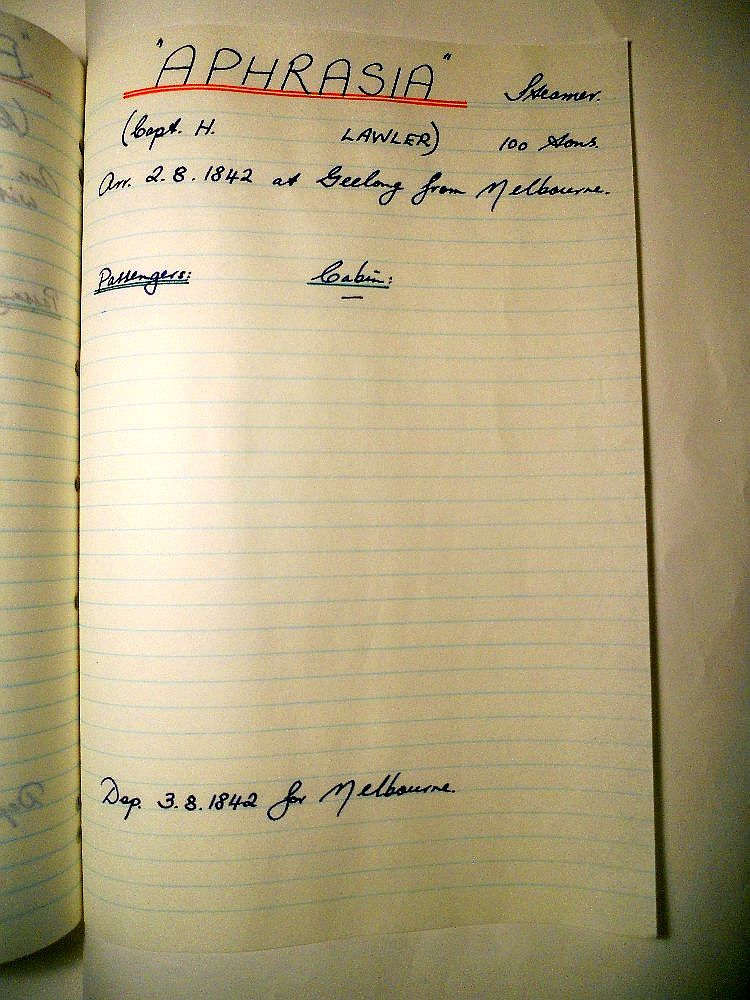 "APHRASIA" Steamer.
(Capt. H. LAWLER) 100 tons.
Arr. 2.8.1842 at Geelong from Melbourne.
Passengers: Cabin:
—
Dep. 3.8.1842 for Melbourne.